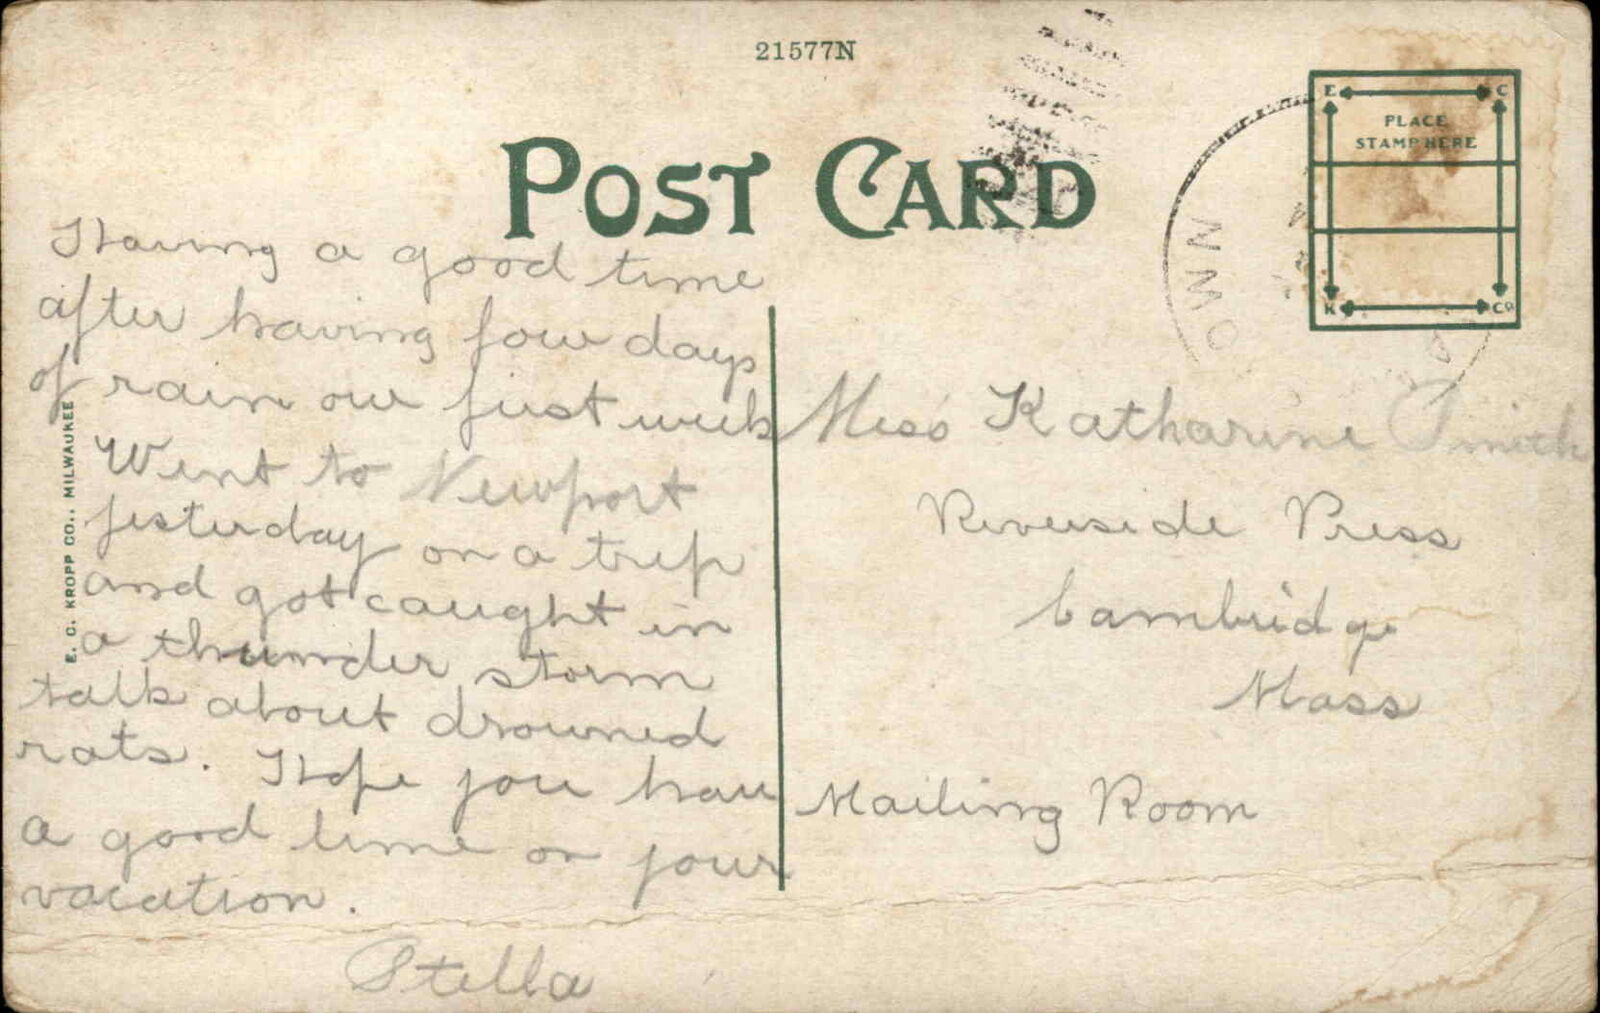 21577N
POST CARD
E C
PLACE
STAMP HERE
K Co
OWN
Having a good time
after having four days
of rain our first week
Went to Newport
yesterday on a trip
and got caught in
a thunder storm
talk about drowned
rats. Hope you have
a good time on your
vacation.
Stella
E. C. KROPP CO., MILWAUKEE
Miss Katharine Smith
Riverside Press
Cambridge
Mass
Mailing Room